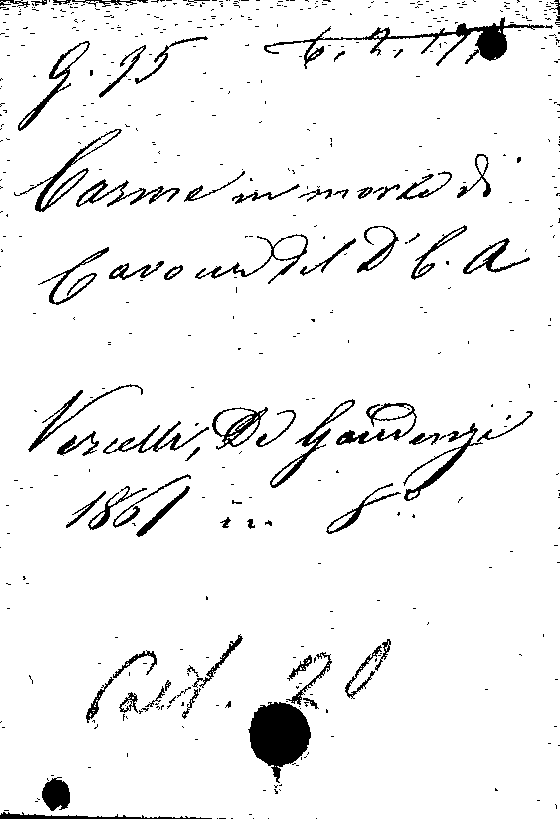 G. 95 6. 2. 17,
Carme in morte di
Cavour del D.r C. A.
Vercelli, De Gaudenzi
1861 in 8.°
Cart. 20